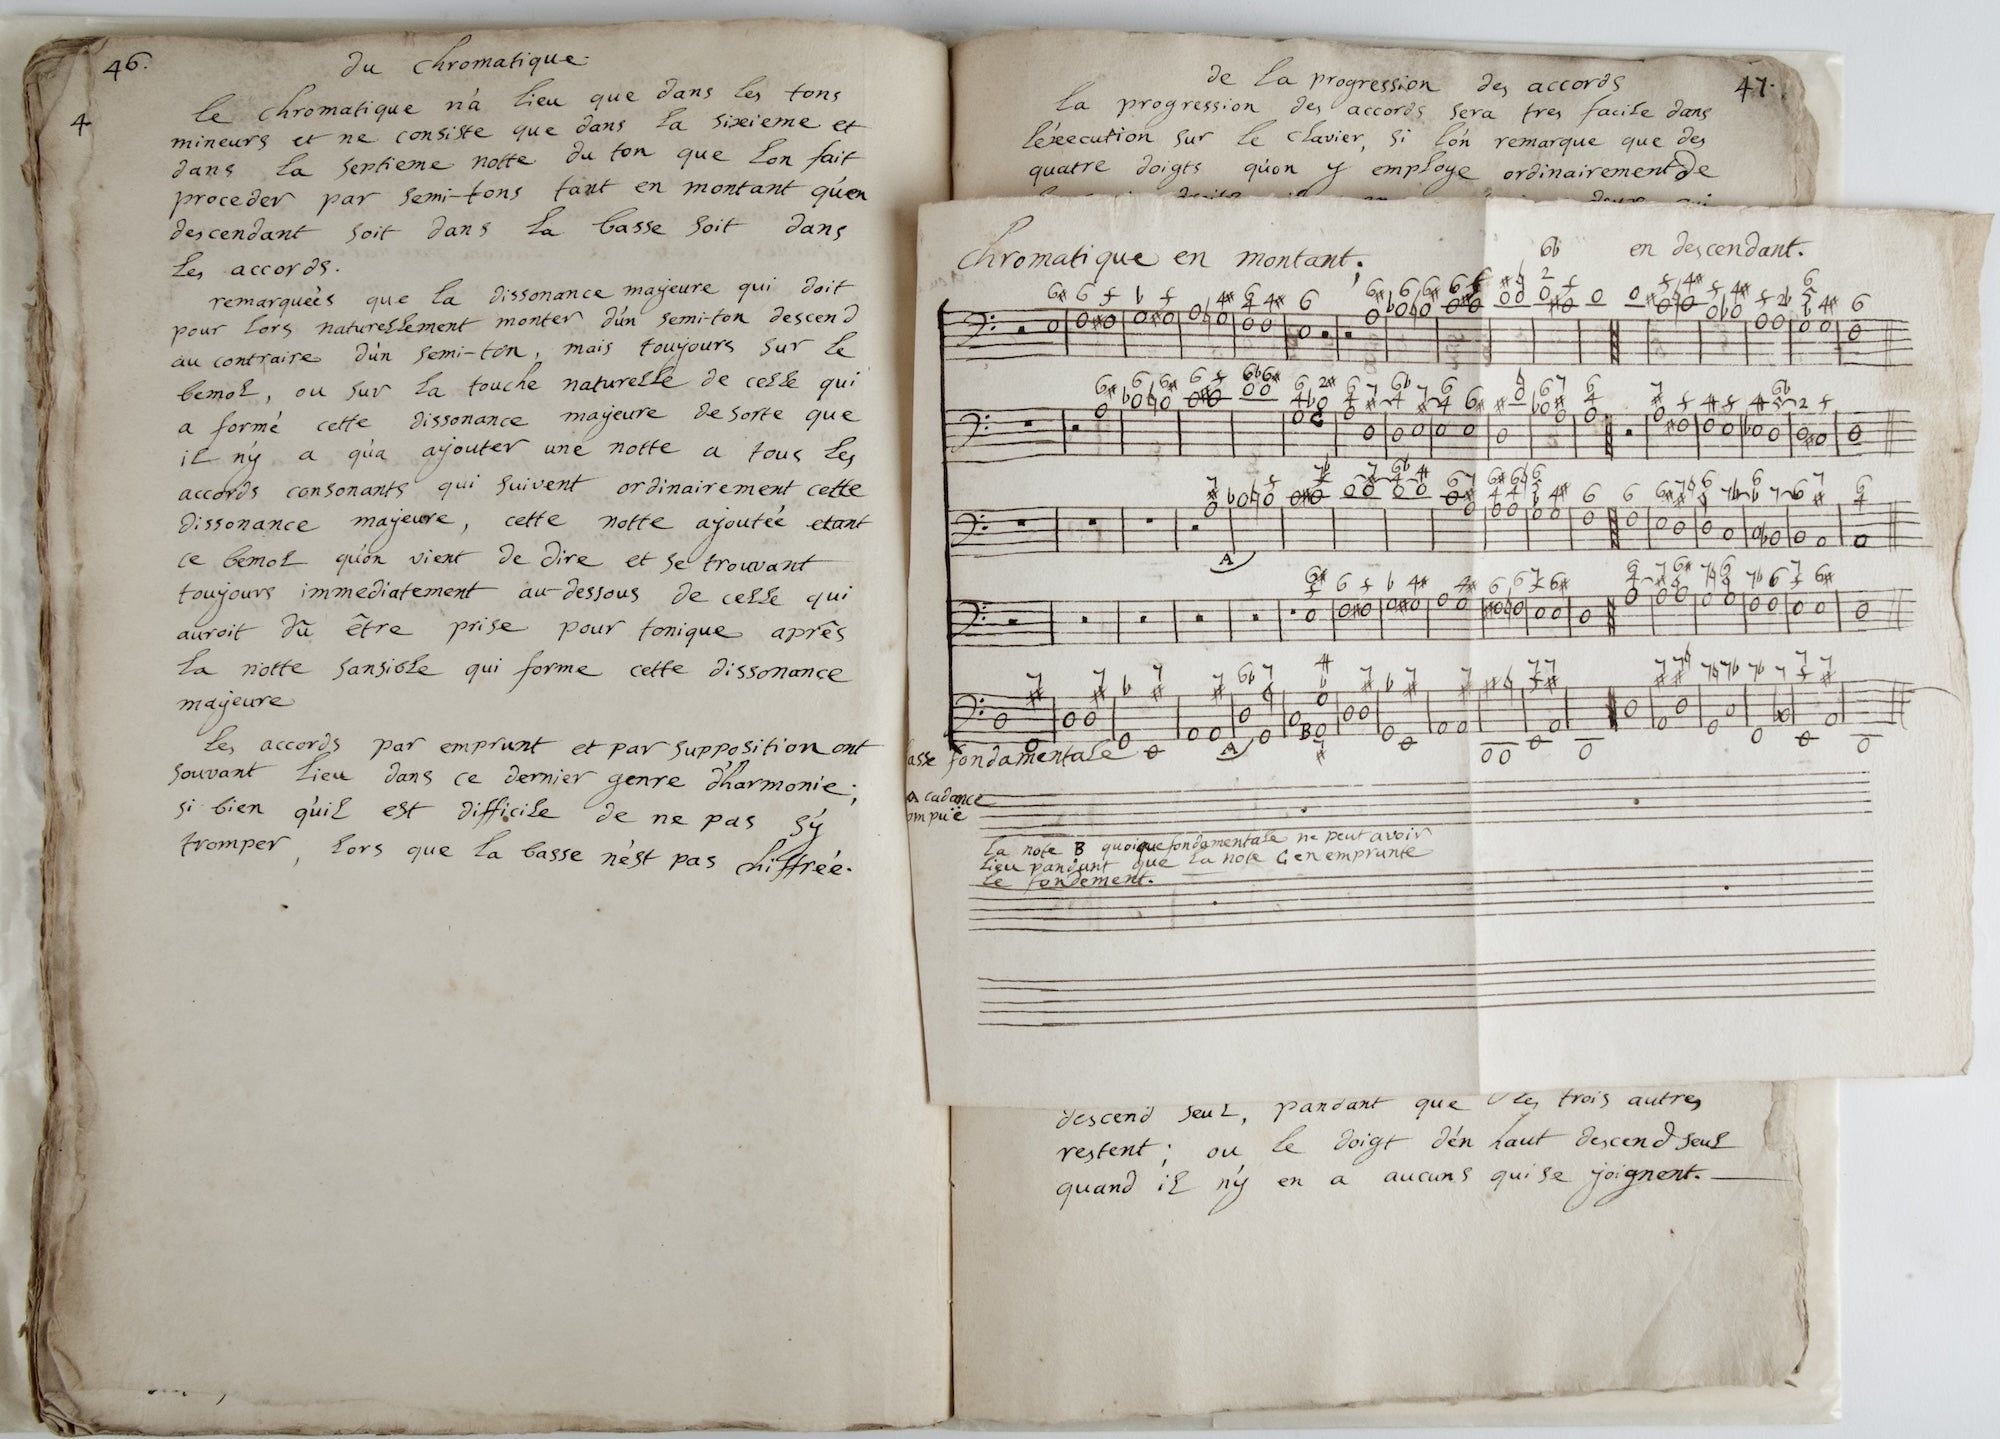 46.
du chromatique.
4
le chromatique n'a lieu que dans les tons
mineurs et ne consiste que dans la sixieme et
dans la septieme notte du ton que lon fait
proceder par semi-tons tant en montant qu'en
descendant soit dans la basse soit dans
les accords.
remarqueés que la dissonance majeure qui doit
pour lors naturellement monter dùn semi-ton descend
au contraire dùn semi-ton, mais toujours sur le
bemol, ou sur la touche naturelle de celle qui
a formé cette dissonance majeure de sorte que
il ny a qu'a ajouter une notte a tous les
accords consonants qui suivent ordinairement cette
dissonance majeure, cette notte ajoutée etant
ce bemol qu'on vient de dire et se trouvant
toujours immediatement au-dessous de celle qui
auroit dû être prise pour tonique après
la notte sansible qui forme cette dissonance
majeure
les accords par emprunt et par supposition ont
souvant lieu dans ce dernier genre d'harmonie;
si bien qu'il est difficile de ne pas s'y
tromper, lors que la basse n'est pas chiffreé.
47.
de la progression des accords
la progression des accords sera tres facile dans
l'éxecution sur le clavier, si lón remarque que des
quatre doigts qu'on y employe ordinairement de
chromatique en montant;
en descendant.
A
A
B
basse fondamentale
a cadance
ompuë
la note B quoique fondamentale ne peut avoir
lieu pandant que la note C en emprunte
le fondement.
descend seul, pandant que les trois autres
restent; ou le doigt dén haut descend seul
quand il ny en a aucuns qui se joignent.